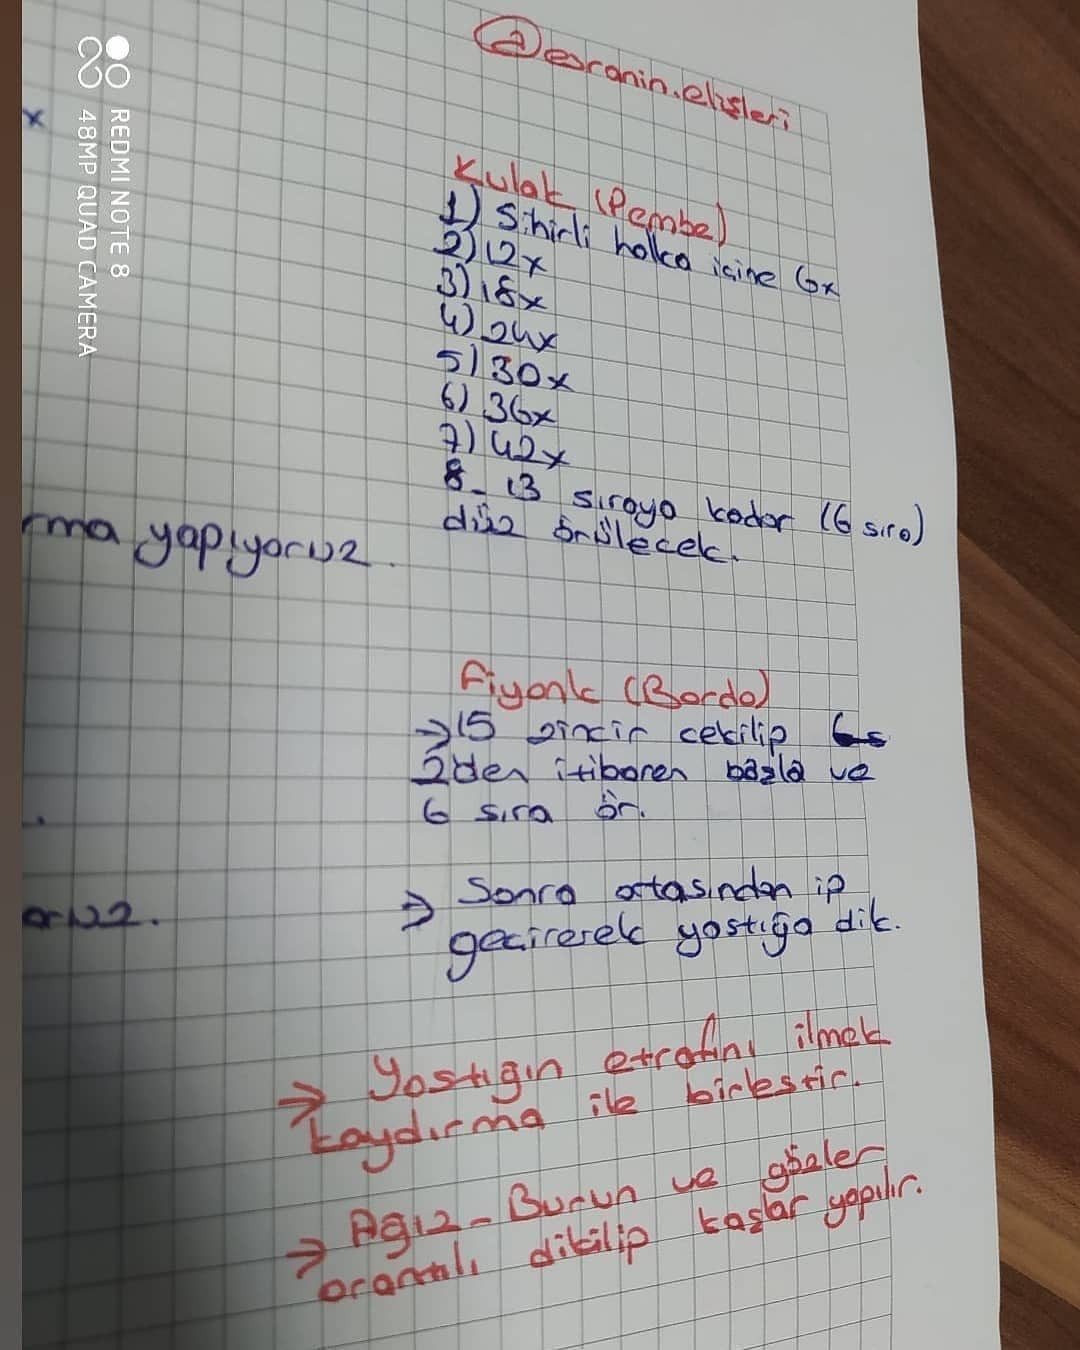 @esranin.elisleri
Kulak (Pembe)
1) Sihirli halka içine 6x
2) 12x
3) 18x
4) 24x
5) 30x
6) 36x
7) 42x
8- 13 sıraya kadar (6 sıra)
düz örülecek.
rma yapıyoruz.
Fiyonk (Bordo)
→ 15 zincir cekilip
2den itibaren başla ve
6 sıra ör.
→ Sonra ortasından ip
geçirerek yastığa dik.
oruz.
→ Yastığın etrafını ilmek
kaydırma ile birleştir.
→ Ağız - Burun ve gözler
orantılı dikilip kaşlar yapılır.
x
REDMI NOTE 8
48MP QUAD CAMERA